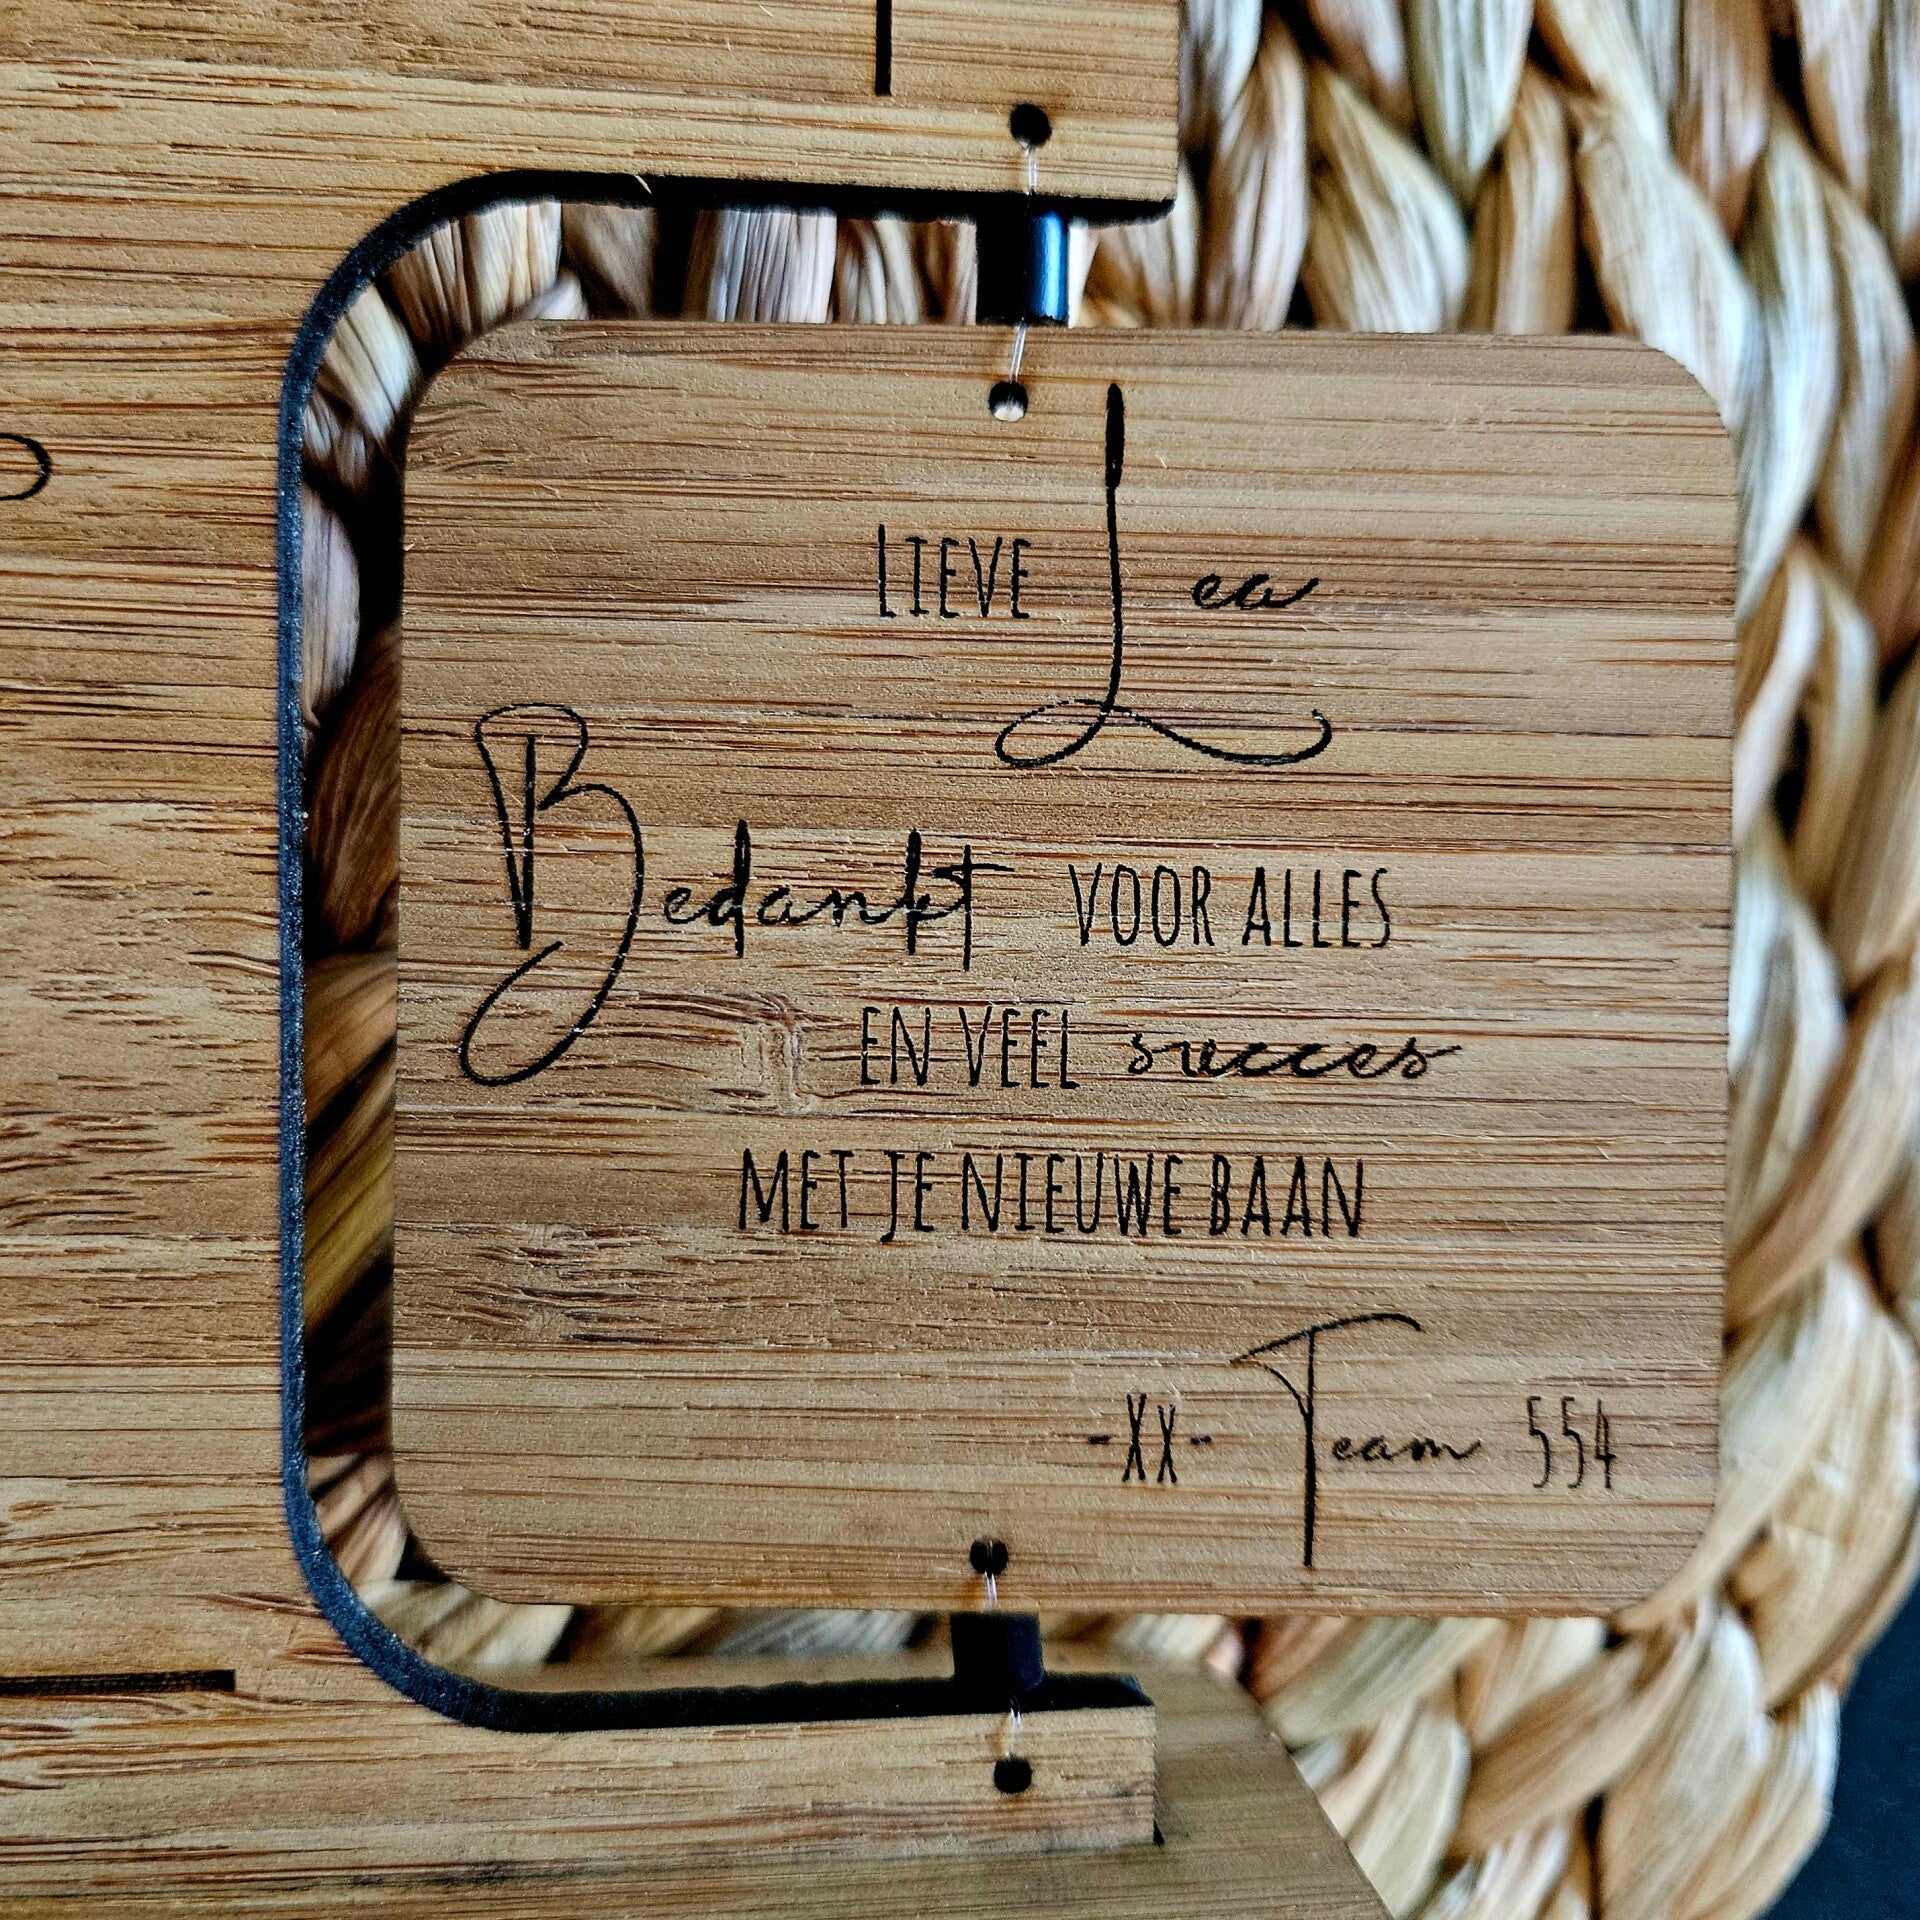 LIEVE Lea
Bedankt VOOR ALLES
EN VEEL succes
MET JE NIEUWE BAAN
-XX- Team 554